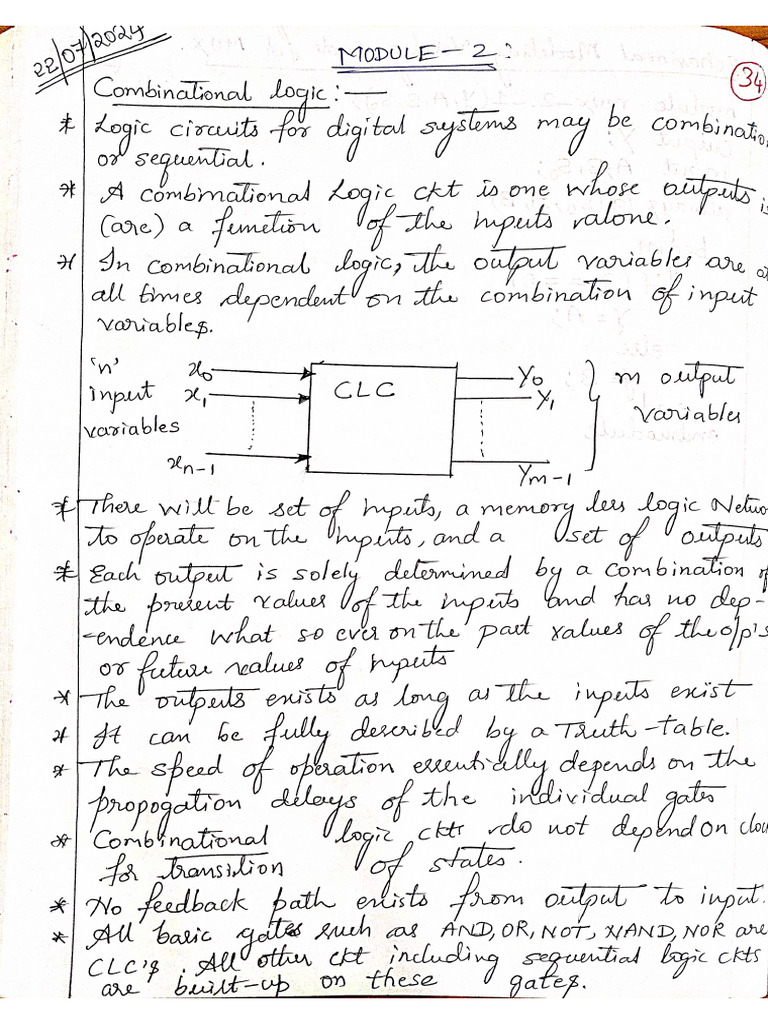 22/07/2024
MODULE - 2 :
34
Combinational logic : —
* Logic circuits for digital systems may be combinatio
or sequential.
* A combinational Logic ckt is one whose outputs is
(are) a function of the inputs alone.
* In combinational logic, the output variables are at
all times dependent on the combination of input
variables.
'n' x0 CLC Y0 m output
input x1 Y1 variables
variables
xn-1 Ym-1
* There will be set of inputs, a memory less logic Netwo
to operate on the inputs, and a set of outputs
* Each output is solely determined by a combination of
the present values of the inputs and has no dep-
-endence what so ever on the past values of the o/p's
or future values of inputs
* The outputs exists as long as the inputs exist
* It can be fully described by a Truth-table.
* The speed of operation essentially depends on the
propogation delays of the individual gates
* Combinational logic ckts do not depend on cloc
for transition of states.
* No feedback path exists from output to input.
* All basic gates such as AND, OR, NOT, NAND, NOR are
CLC's. All other ckt including sequential logic ckts
are built-up on these gates.